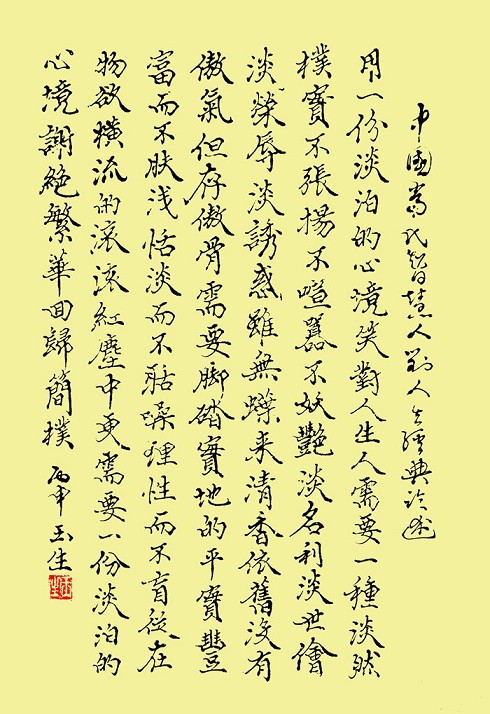 中國當代智慧人對人生經典论述
用一份淡泊的心境笑對人生人需要一種淡然
樸實不張揚不喧囂不妖艷淡名利淡世儈
淡榮辱淡誘惑雖無蝶来清香依舊沒有
傲氣但存傲骨需要脚踏實地的平實豐
富而不肤浅恬淡而不聒噪理性而不盲從在
物欲橫流的滚滚紅塵中更需要一份淡泊的
心境謝絕繁華回歸簡樸 丙申玉生